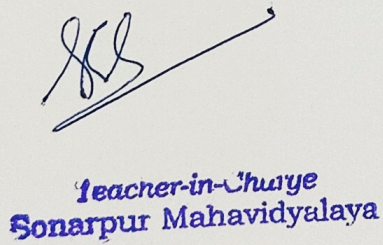 Teacher-in-Charge
Sonarpur Mahavidyalaya